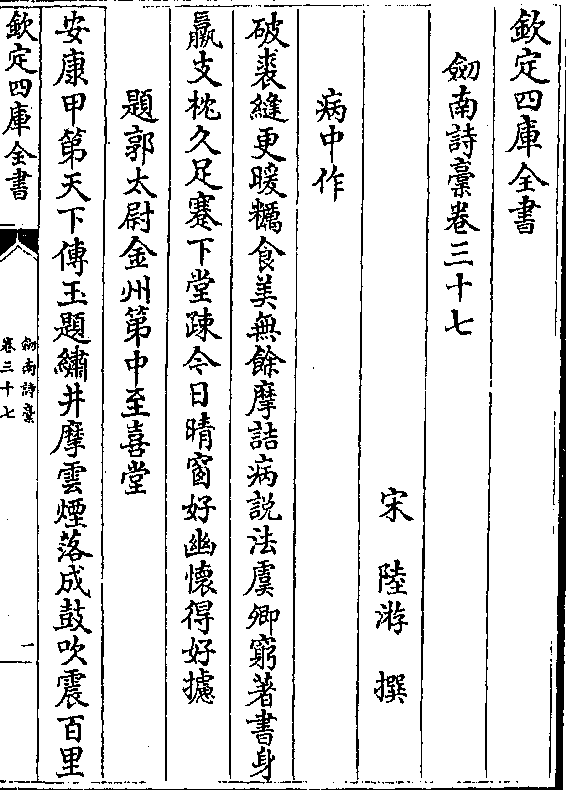 欽定四庫全書
劒南詩藁卷三十七
宋 陸游 撰
病中作
破裘縫更暖糲食美無餘摩詰病說法虞卿窮著書身
羸支枕久足蹇下堂踈今日晴窗好幽懷得好攄
題郭太尉金州第中至喜堂
安康甲第天下傳玉題繡井摩雲煙落成鼓吹震百里
欽定四庫全書
劒南詩藁
卷三十七
一